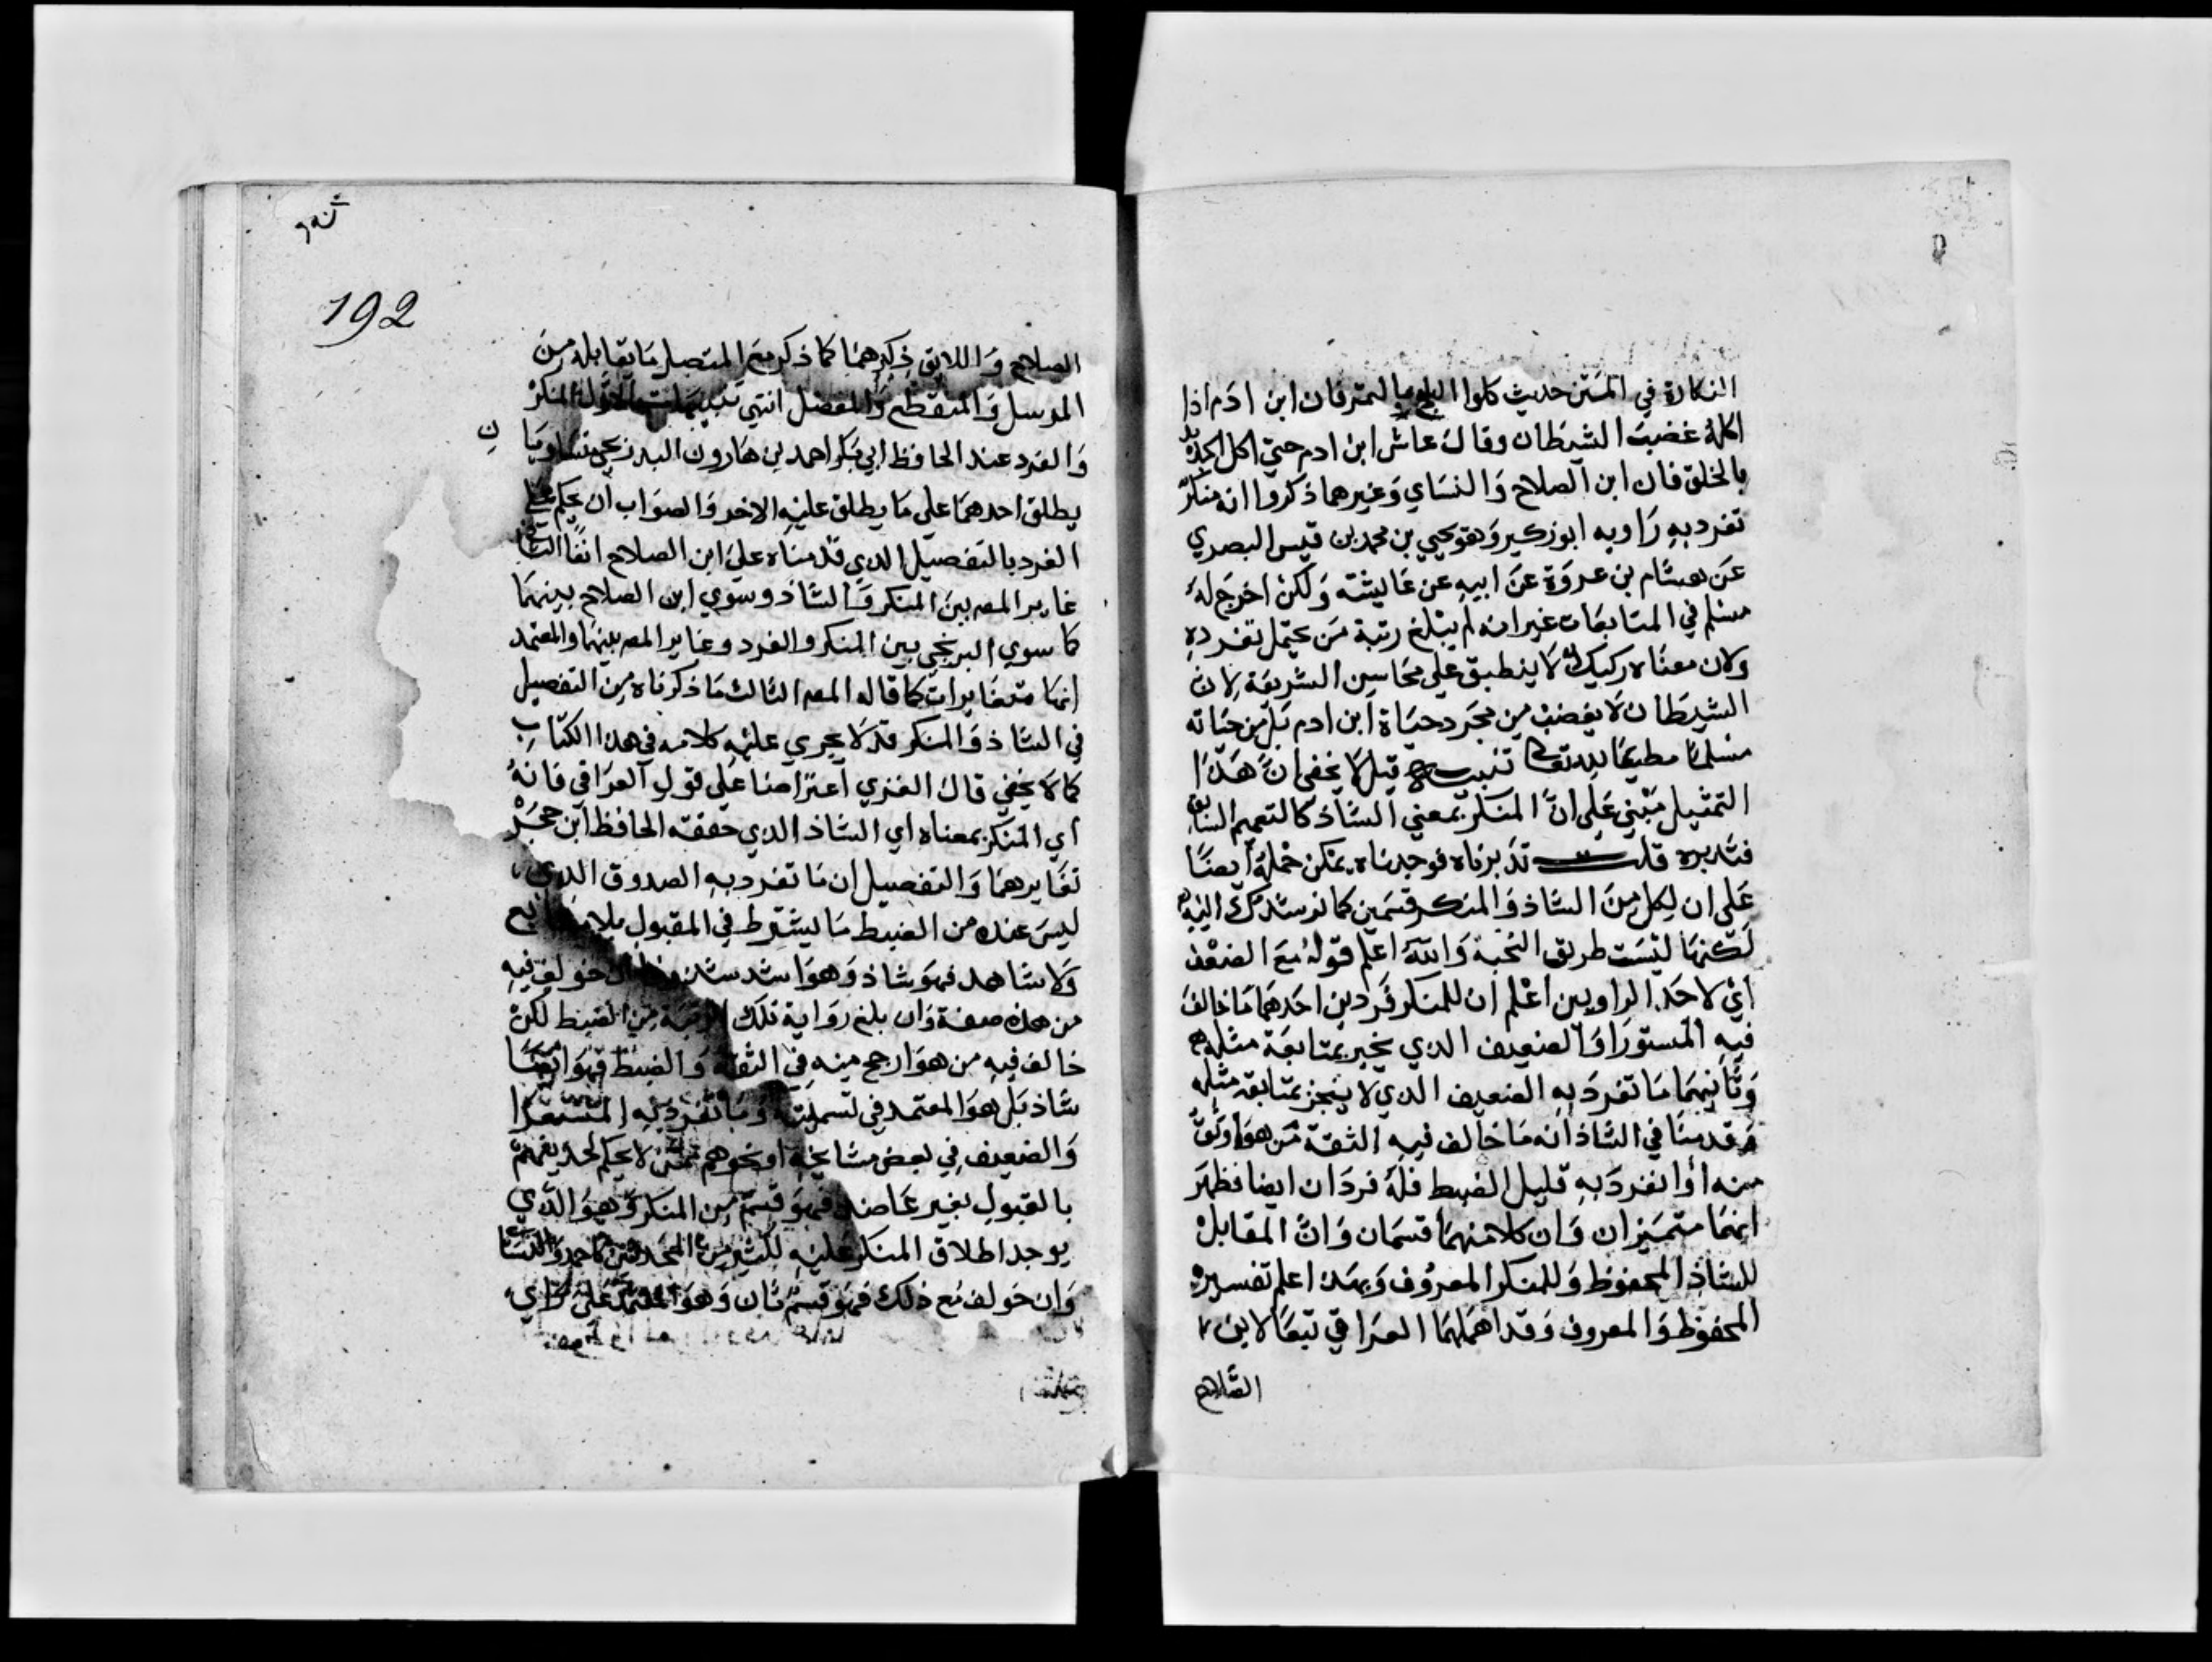 النكارة في المتن حديث كلوا البلح بالتمر فان ابن ادم اذا
اكله غضب الشيطان وقال عاش ابن ادم حتي اكل الجديد
بالخلق فان ابن الصلاح والنساي وغيرهما ذكروا انه منكر
تفرد به راويه ابو زكير وهو يحيي بن محمد بن قيس البصري
عن هشام بن عروة عن ابيه عن عايشة ولكن اخرج له
مسلم في المتابعات غير انه لم يبلغ رتبة من يحتمل تفرده
ولان معناه ركيك لا ينطبق علي محاسن الشريعة لان
الشيطان لا يغضب من مجرد حياة ابن ادم بل من حياته
مسلما مطيعا لله تعالى تنبيه قيل لا يخفى ان هذا
التمثيل مبني على ان المنكر بمعني الشاذ كالتعميم السابق
فتدبره قلت تدبرناه فوجدناه يمكن حمله ايضا
على ان لكل من الشاذ والمنكر قسمين كما نرشدك اليه
لكنها ليست طريق النخبة والله اعلم قوله مع الضعف
اي لاحد الراويين اعلم ان للمنكر فردين احدهما ما خالف
فيه المستور او الضعيف الذي يجبر بمتابعة مثله
وثانيهما ما تفرد به الضعيف الذي لا ينجبر بمتابعة مثله
وقدمنا في الشاذ انه ما خالف فيه الثقة من هو اوثق
منه او انفرد به قليل الضبط فله فردان ايضا فظهر
انهما متميزان وان كلا منهما قسمان وان المقابل
للشاذ المحفوظ وللمنكر المعروف وبهذا اعلم تفسيره
المحفوظ والمعروف وقد اهملهما العراقي تبعا لابن
الصلاح
192
الصلاح واللايق ذكرهما كما ذكر مع المتصل ما يقابله من
المرسل والمنقطع والمعضل انتهي تنبيهات الاول المنكر
والفرد عند الحافظ ابي بكر احمد بن هارون البرديجي متساويا
ن
يطلق احدهما على ما يطلق عليه الاخر والصواب ان يحكم على
الفرد بالتفصيل الذي قدمناه على ابن الصلاح انفا الثاني
غاير المصر بين المنكر والشاذ وسوي ابن الصلاح بينهما
كما سوي البرديجي بين المنكر والفرد وغاير المصر بينهما والمعتمد
انها متغايرات كما قاله المصر الثالث ما ذكرناه من التفصيل
في الشاذ والمنكر قد لا يجري عليه كلامه في هذا الكتاب
كما لا يخفي قال الغزي اعتراضا على قول العراقي فانه
اي المنكر بمعناه اي الشاذ الذي حققه الحافظ ابن حجر
تغايرهما والتفصيل ان ما تفرد به الصدوق الذي
ليس عنده من الضبط ما يشترط في المقبول بلا متابع
ولا شاهد فهو شاذ وهو اشد شذوذا ان خولف فيه
من هذه صفة وان بلغ رواية تلك الرتبة من الضبط لكن
خالف فيه من هو ارجح منه في الثقة والضبط فهو ايضا
شاذ بل هو المعتمد في تسميته وما تفرد به المستور
والضعيف في بعض مشايخه او نحوهم ممن لا يحكم لحديثهم
بالقبول بغير عاضد فهو قسم من المنكر وهو الذي
يوجد اطلاق المنكر عليه لكثير من المحدثين كاحمد والنساي
وان خولف مع ذلك فهو قسم ثان وهو المعتمد على راي